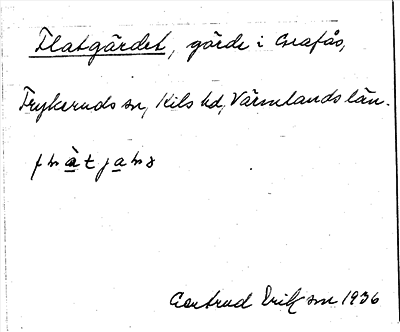 Flatgärdet, gärde i Grafås,
Frykeruds sn, Kils hd, Värmlands län.
Gertrud Erikson 1936